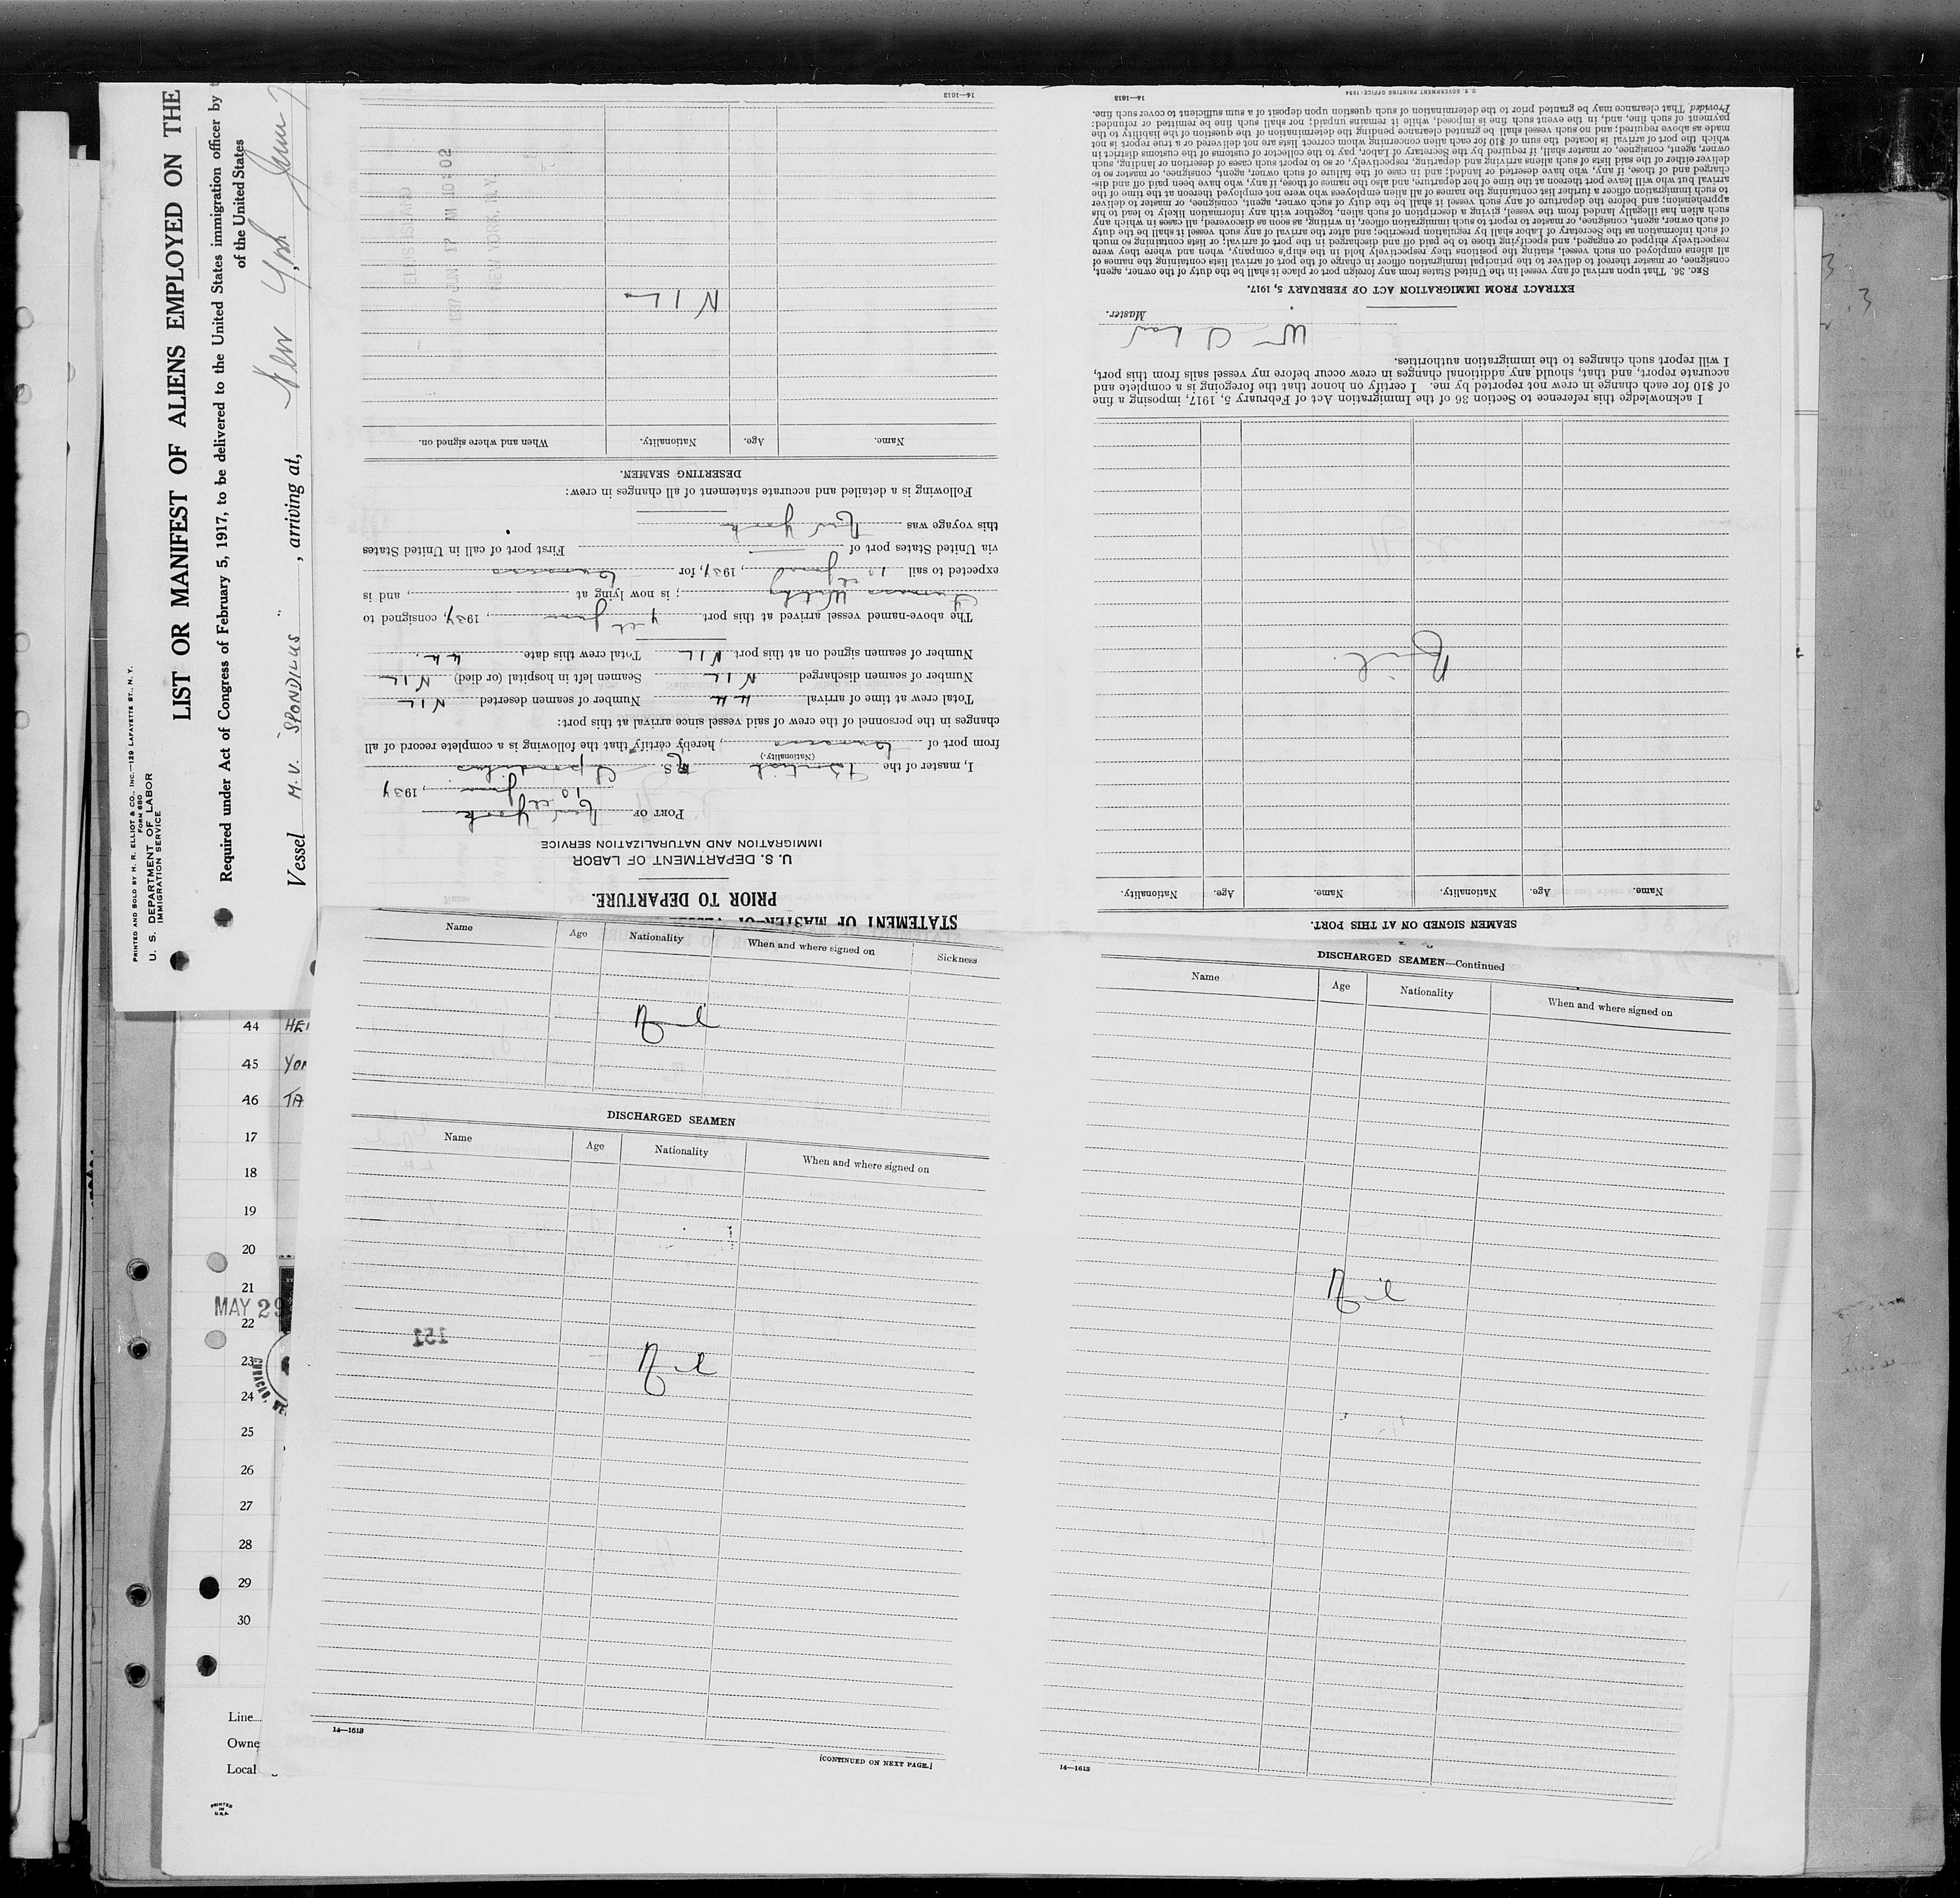 PRINTED AND SOLD BY H. R. ELLIOT & CO., INC.—129 LAFAYETTE ST., N. Y.
FORM 680
U. S. DEPARTMENT OF LABOR
IMMIGRATION SERVICE
LIST OR MANIFEST OF ALIENS EMPLOYED ON THE
Required under Act of Congress of February 5, 1917, to be delivered to the United States immigration officer by
of the United States
Vessel M.V. "SPONDILUS", arriving at, New York
STATEMENT OF MASTER OF
PRIOR TO DEPARTURE.
U. S. DEPARTMENT OF LABOR
IMMIGRATION AND NATURALIZATION SERVICE
PORT OF New York
10th June, 1937
I, master of the British S. Spondilus
(Nationality.)
from port of Curacao, hereby certify that the following is a complete record of all
changes in the personnel of the crew of said vessel since arrival at this port:
Total crew at time of arrival 44 Number of seamen deserted NIL
Number of seamen discharged NIL Seamen left in hospital (or died) NIL
Number of seamen signed on at this port NIL Total crew this date 44.
The above-named vessel arrived at this port June, 1937, consigned to
; is now lying at , and is
expected to sail 10th June, 1937, for Curacao
via United States port of First port of call in United States
this voyage was New York
Following is a detailed and accurate statement of all changes in crew:
DESERTING SEAMEN.
Name. Age. Nationality. When and where signed on.
NIL
ELLIS ISLAND
NEW YORK, N. Y.
14—1613
SEAMEN SIGNED ON AT THIS PORT.
Name. Age. Nationality. Name. Age. Nationality.
Nil.
I acknowledge this reference to Section 36 of the Immigration Act of February 5, 1917, imposing a fine
of $10 for each change in crew not reported by me. I certify on honor that the foregoing is a complete and
accurate report, and that, should any additional changes in crew occur before my vessel sails from this port,
I will report such changes to the immigration authorities.
Master.
EXTRACT FROM IMMIGRATION ACT OF FEBRUARY 5, 1917.
SEC. 36. That upon arrival of any vessel in the United States from any foreign port or place it shall be the duty of the owner, agent,
consignee, or master thereof to deliver to the principal immigration officer in charge of the port of arrival lists containing the names of
all aliens employed on such vessel, stating the positions they respectively hold in the ship's company, when and where they were
respectively shipped or engaged, and specifying those to be paid off and discharged in the port of arrival; or lists containing so much
of such information as the Secretary of Labor shall by regulation prescribe; and after the arrival of any such vessel it shall be the duty
of such owner, agent, consignee, or master to report to such immigration officer, in writing, as soon as discovered, all cases in which any
such alien has illegally landed from the vessel, giving a description of such alien, together with any information likely to lead to his
apprehension; and before the departure of any such vessel it shall be the duty of such owner, agent, consignee, or master to deliver
to such immigration officer a further list containing the names of all alien employees who were not employed thereon at the time of the
arrival but who will leave port thereon at the time of her departure, and also the names of those, if any, who have been paid off and dis-
charged and of those, if any, who have deserted or landed; and in case of the failure of such owner, agent, consignee, or master so to
deliver either of the said lists of such aliens arriving and departing, respectively, or so to report such cases of desertion or landing, such
owner, agent, consignee, or master shall, if required by the Secretary of Labor, pay to the collector of customs of the customs district in
which the port of arrival is located the sum of $10 for each alien concerning whom correct lists are not delivered or a true report is not
made as above required; and no such vessel shall be granted clearance pending the determination of the question of the liability to the
payment of such fine, and, in the event such fine is imposed, while it remains unpaid; nor shall such fine be remitted or refunded:
Provided, That clearance may be granted prior to the determination of such question upon deposit of a sum sufficient to cover such fine.
14—1613
U. S. GOVERNMENT PRINTING OFFICE: 1934
Name Age Nationality When and where signed on Sickness
Nil
DISCHARGED SEAMEN
Name Age Nationality When and where signed on
151
Nil
14—1613
[CONTINUED ON NEXT PAGE.]
DISCHARGED SEAMEN—Continued
Name Age Nationality When and where signed on
Nil
14—1613
44 HE
45 YO
46 TA
17
18
19
20
21
MAY 29
22
23
24
25
26
27
28
29
30
Line
Owne
Local
PRINTED
IN
U.S.A.